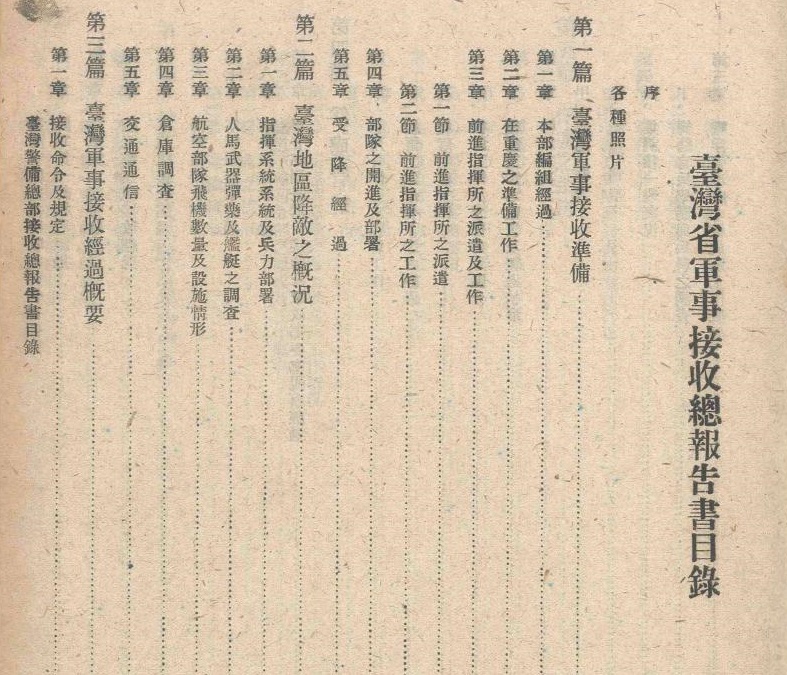 臺灣省軍事接收總報告書目錄
序
各種照片
第一篇　臺灣軍事接收準備
第一章　本部編組經過
第二章　在重慶之準備工作
第三章　前進指揮所之派遣及工作
第一節　前進指揮所之派遣
第二節　前進指揮所之工作
第四章　部隊之開進及部署
第五章　受降經過
第二篇　臺灣地區降敵之概況
第一章　指揮系統系統及兵力部署
第二章　人馬武器彈藥及艦艇之調查
第三章　航空部隊飛機數量及設施情形
第四章　倉庫調查
第五章　交通通信
第三篇　臺灣軍事接收經過概要
第一章　接收命令及規定
臺灣警備總部接收總報告書目錄